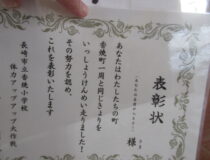 表彰状
様
あなたはわたしたちの町
香焼町一周と同じきょりを
いっしょうけんめい走りました!
その努力を認め、
これを表彰いたします
長崎市立香焼小学校
体力アップアップ大作戦